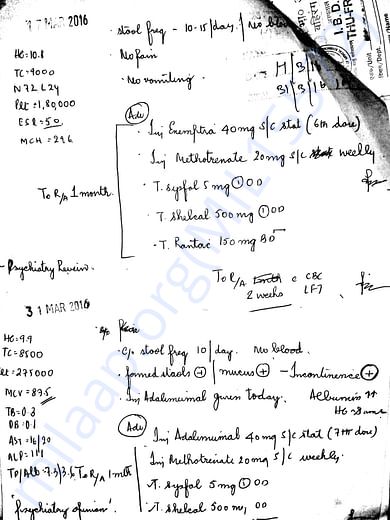 17 MAR 2016
stool freq - 10-15/day. / No blo
I.B.D.
HG=10.8
No pain
TC=9000
No vomiting.
N72 L24
Plt = 1,80,000
ESR=50
MCH = 296
Adv
Inj Exemptia 40mg s/c stat (6th dose)
Inj Methotrexate 20mg s/c weekly
To R/A 1 month.
T. sypfol 5mg ① OD
T. shelcal 500mg ① OD
T. Rantac 150mg BD
- Psychiatry Review.
To R/A c CBC
2 weeks LFT
31 MAR 2016
HG=9.9
TC=8500
c/o stool freq 10/day. No blood.
Plt=275000
formed stools ⊕ / mucus ⊕ - Incontinence ⊕
MCV=87.5
Inj Adalimumab given today.
TB=0.3
DB=0.1
Adv
Inj Adalimumab 40mg s/c stat (7th dose)
AST=16/20
ALP=111
Inj Methotrexate 20mg s/c weekly.
TP/Alb=7.3/3.6
To R/A 1 mth
T. sypfol 5mg ① OD
"Psychiatry opinion".
T. shelcal 500 m, OD
milaap.org